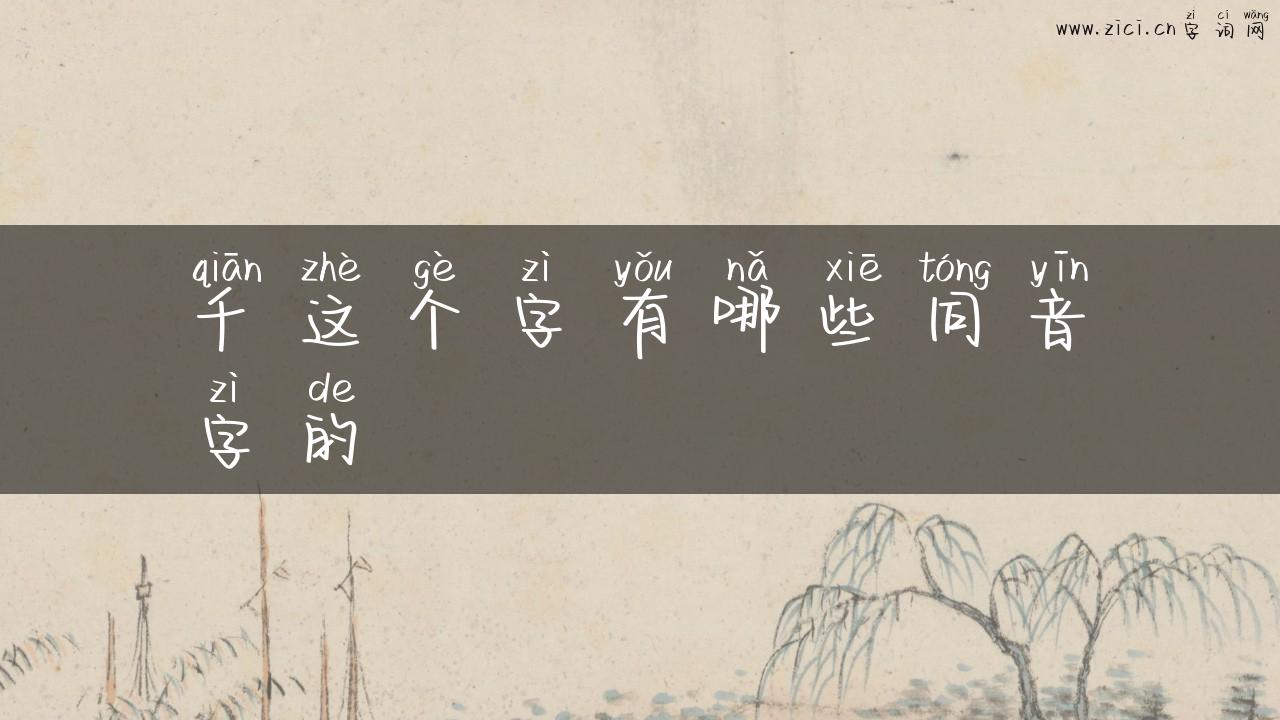 zì cí wǎng
www.zici.cn 字词网
qiān zhè gè zì yǒu nǎ xiē tóng yīn
千这个字有哪些同音
zì de
字的